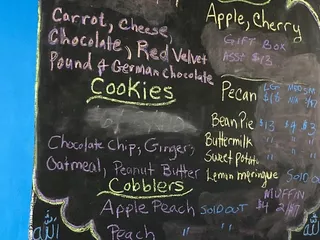 Carrot, Cheese,
Chocolate, Red Velvet
Pound & German Chocolate
Cookies
Chocolate Chip, Ginger,
Oatmeal, Peanut Butter
Cobblers
Apple Peach SOLD OUT
Peach " "
Apple, Cherry
GIFT BOX
ASST $13
Pecan
Bean Pie $13 $4 $3
Buttermilk " " "
Sweet Potato " " "
Lemon meringue SOLD O
MUFFIN
الله
الله